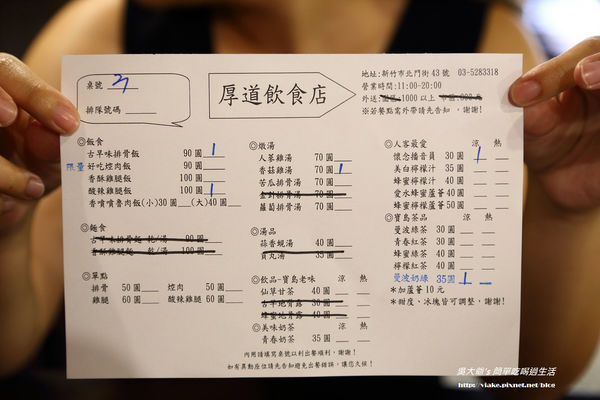 桌號 2
排隊號碼
厚道飲食店
地址:新竹市北門街43號 03-5283318
營業時間:11:00-20:00
外送: 1000以上
※若餐點需外帶請先告知,謝謝!
◎飯食
古早味排骨飯 90圓 1
限量 好吃焢肉飯 90圓
香酥雞腿飯 100圓
酸辣雞腿飯 100圓 1
香噴噴魯肉飯(小)30圓 (大)40圓
◎麵食
古早味排骨麵 乾/湯 90圓
香酥雞腿麵 乾/湯 100圓
◎單點
排骨 50圓 焢肉 50圓
雞腿 60圓 酸辣雞腿 60圓
◎燉湯
人蔘雞湯 70圓
香菇雞湯 70圓 1
苦瓜排骨湯 70圓
金針排骨湯 70圓
蘿蔔排骨湯 70圓
◎湯品
蒜香蜆湯 40圓
貢丸湯 35圓
◎飲品-寶島老味 涼 熱
仙草甘茶 40圓
古早地骨露 30圓
蜂蜜地骨露 40圓
◎美味奶茶 涼 熱
青春奶茶 35圓
◎人客最愛 涼 熱
懷念播音員 30圓 1
美白檸檬汁 35圓
蜂蜜檸檬汁 40圓
愛水蜂蜜蘆薈40圓
蜂蜜檸檬蘆薈50圓
◎寶島茶品 涼 熱
曼波綠茶 30圓
青春紅茶 30圓
蜂蜜綠茶 40圓
檸檬紅茶 40圓
曼波奶綠 35圓 1
*加蘆薈10元
*甜度,冰塊皆可調整,謝謝!
內用請填寫桌號以利出餐順利,謝謝!
如有異動座位請先告知避免出餐錯誤,讓您久候!
吳大爺's 簡單吃喝過生活
http://viake.pixnet.net/blog